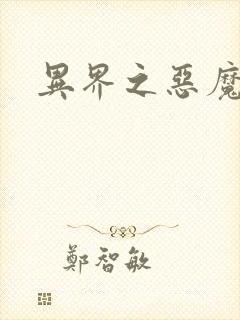 異界之惡魔
鄭智敏